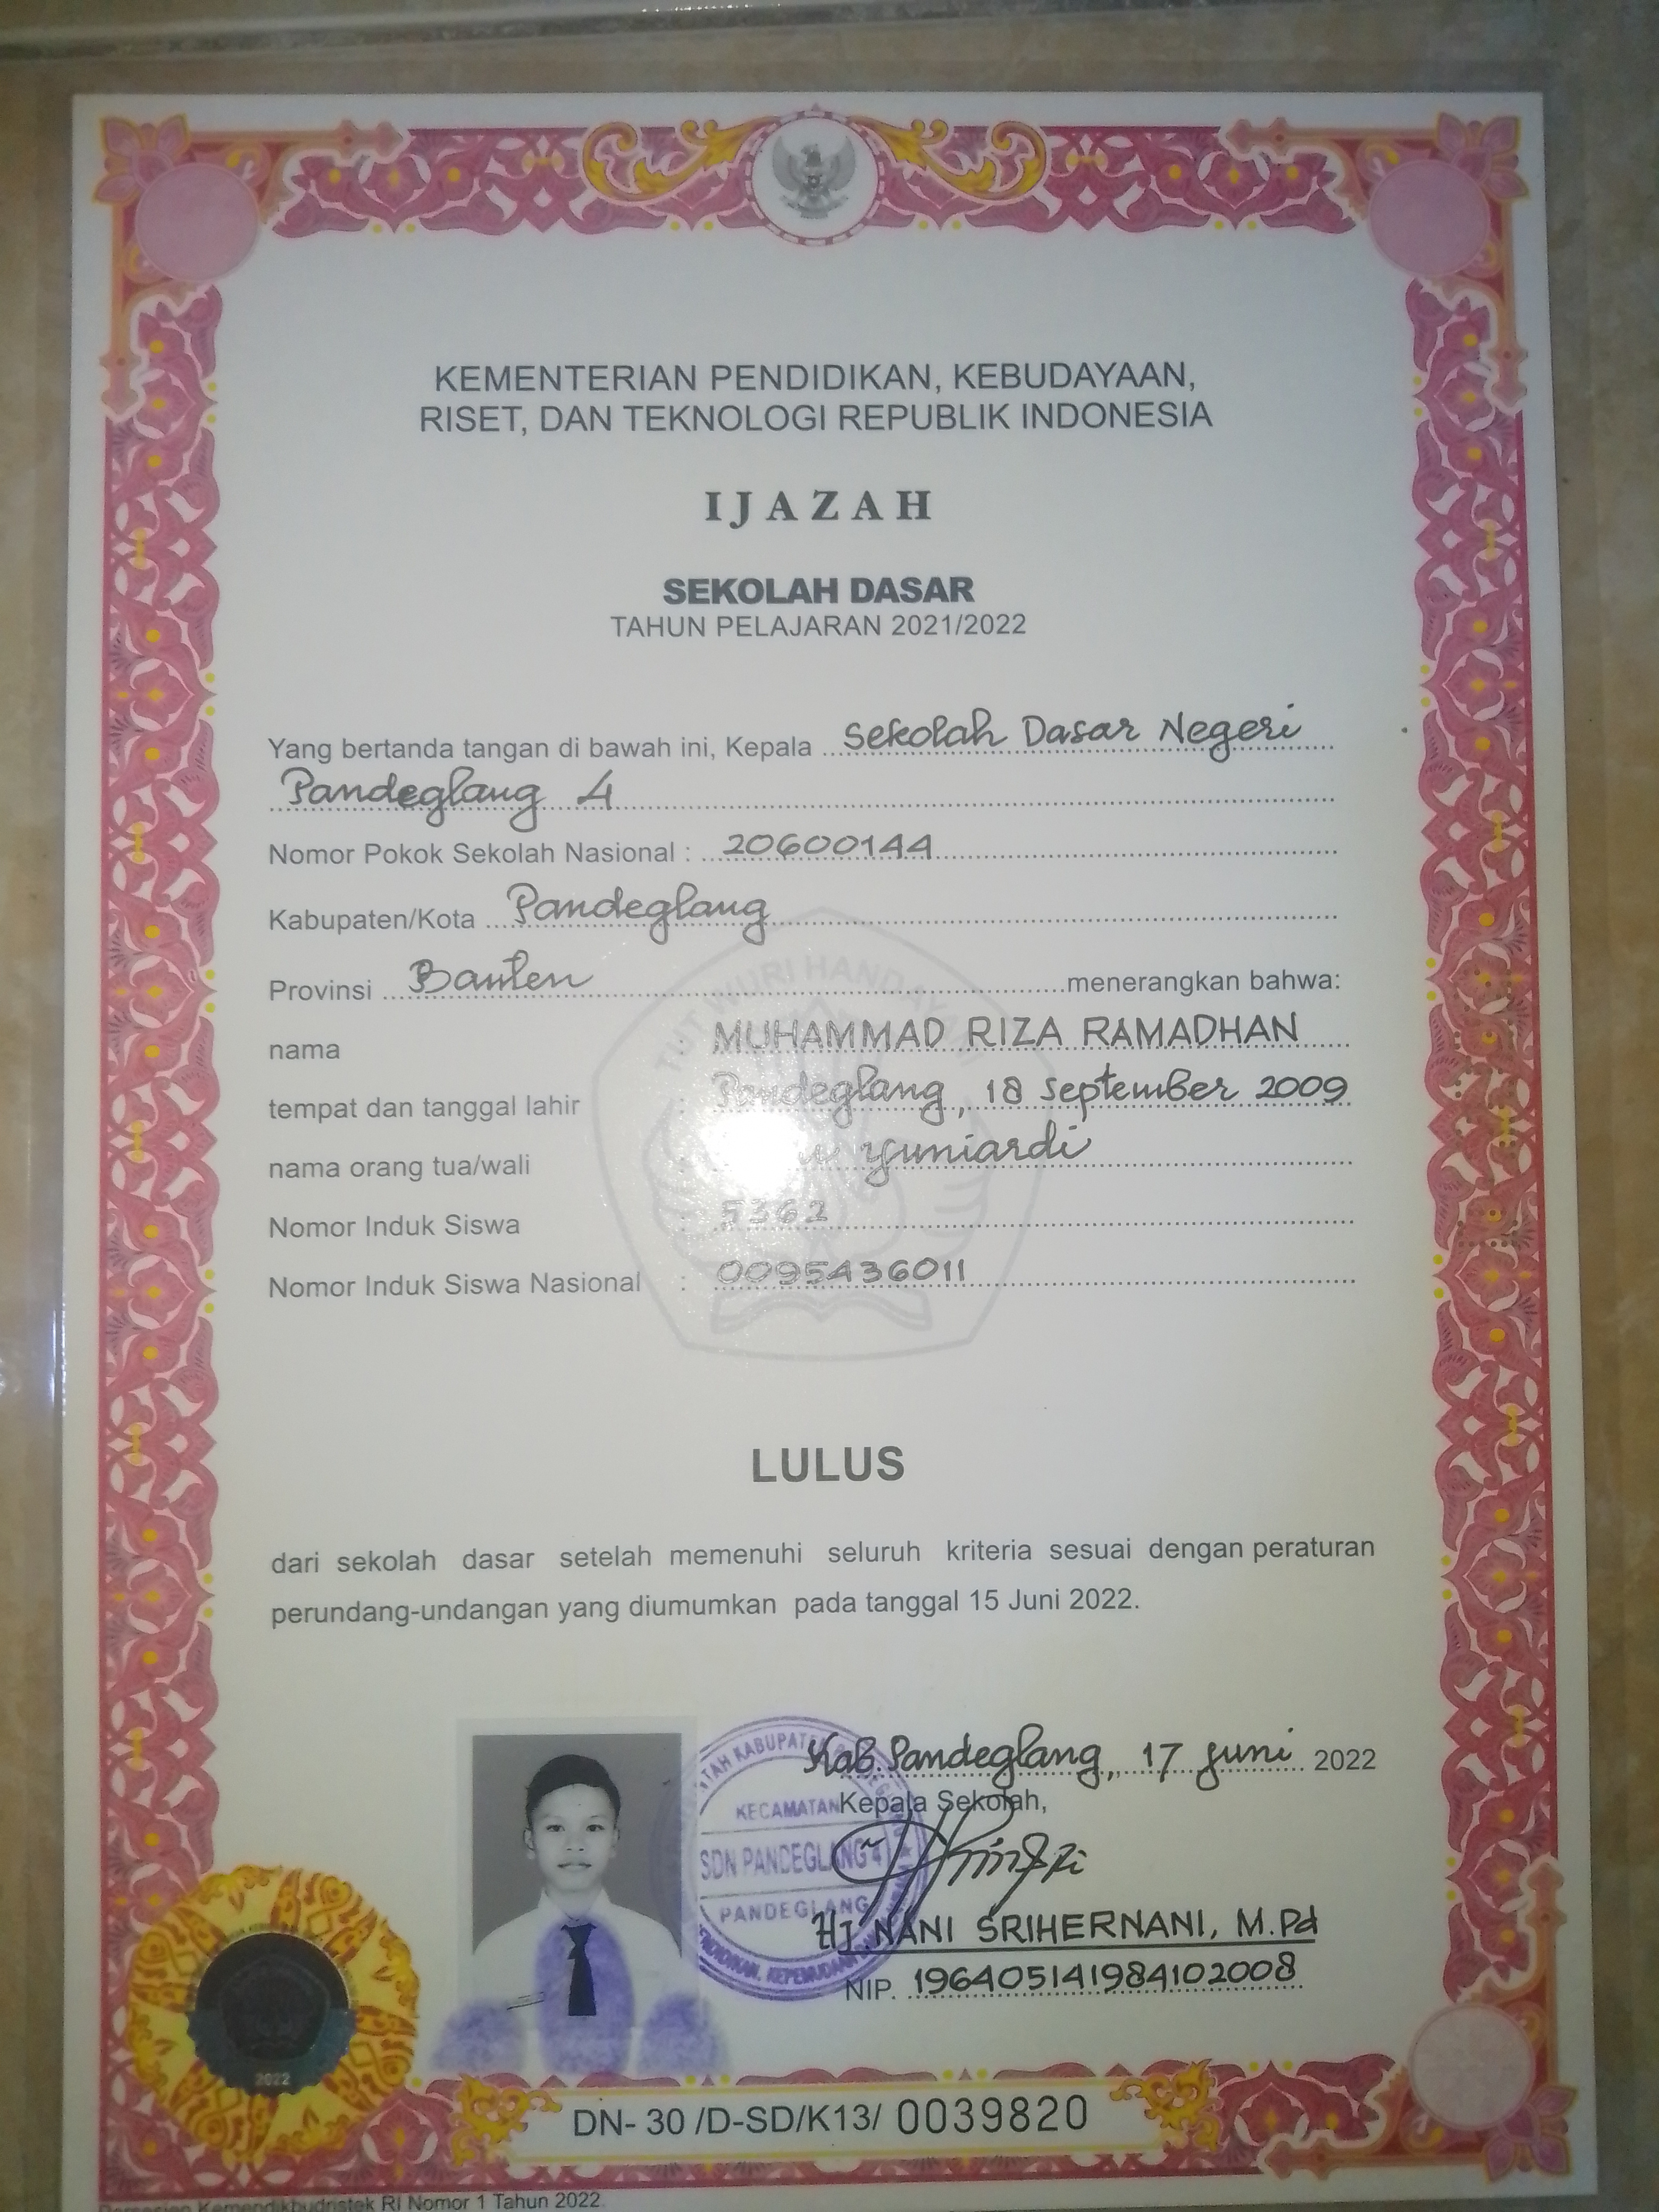 KEMENTERIAN PENDIDIKAN, KEBUDAYAAN,
RISET, DAN TEKNOLOGI REPUBLIK INDONESIA
IJAZAH
SEKOLAH DASAR
TAHUN PELAJARAN 2021/2022
Yang bertanda tangan di bawah ini, Kepala Sekolah Dasar Negeri
Pandeglang 4
Nomor Pokok Sekolah Nasional : 20600144
Kabupaten/Kota Pandeglang
Provinsi Banten menerangkan bahwa:
nama : MUHAMMAD RIZA RAMADHAN
tempat dan tanggal lahir : Pandeglang, 18 September 2009
nama orang tua/wali : Yuniardi
Nomor Induk Siswa : 5362
Nomor Induk Siswa Nasional : 0095436011
TUT WURI HANDAYANI
LULUS
dari sekolah dasar setelah memenuhi seluruh kriteria sesuai dengan peraturan
perundang-undangan yang diumumkan pada tanggal 15 Juni 2022.
Kab. Pandeglang, 17 Juni 2022
Kepala Sekolah,
KECAMATAN
SDN PANDEGLANG 4
PANDEGLANG
Hj. NANI SRIHERNANI, M.Pd
NIP. 196405141984102008
2022
DN- 30 /D-SD/K13/ 0039820
Persesjen Kemendikbudristek RI Nomor 1 Tahun 2022